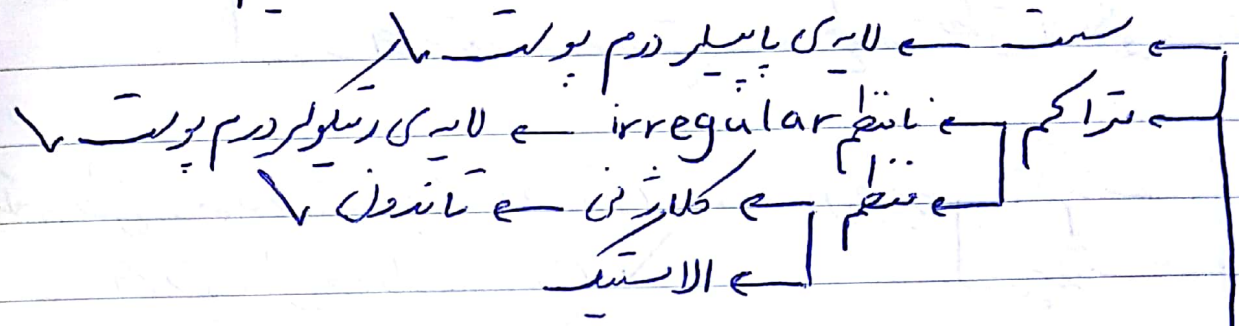 سست ← لایه ی پاپیلر درم پوست
متراکم ← نامنظم irregular ← لایه ی رتیکولر درم پوست
منظم ← کلاژنی ← تاندون
الاستیک